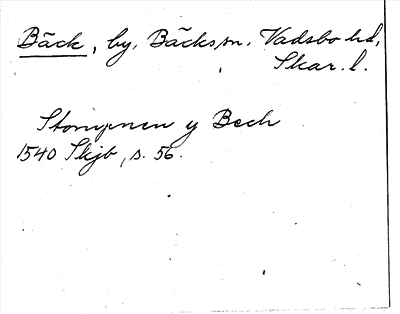 Bäck, by, Bäcks sn. Vadsbo hd,
Skar. l.
Stompnen y Bech
1540 Skjb, s. 56.